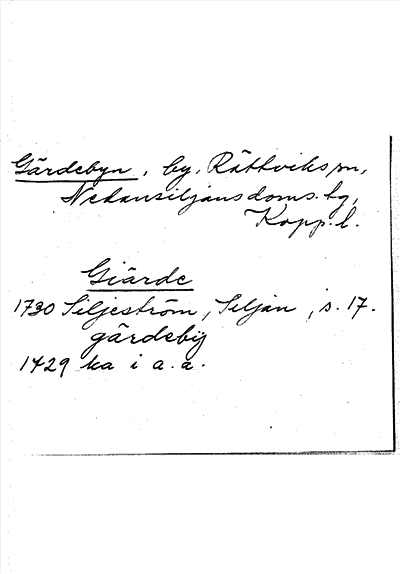 Gärdebyn, by, Rättviks sn,
Nedansiljans doms. hg,
Kopp. l.
Giärde
1730 Siljeström, Siljan, s. 17.
gärdebÿ
1429 ka i a. a.